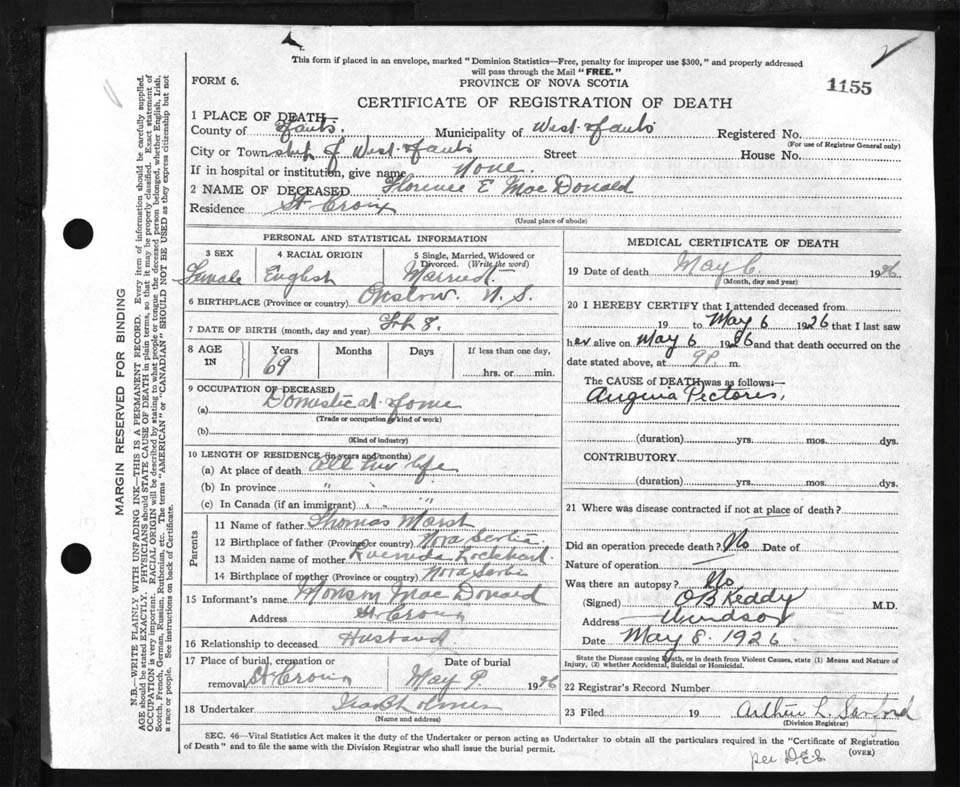 This form if placed in an envelope, marked "Dominion Statistics—Free, penalty for improper use $300," and properly addressed
will pass through the Mail "FREE."
FORM 6.
PROVINCE OF NOVA SCOTIA
1155
CERTIFICATE OF REGISTRATION OF DEATH
1 PLACE OF DEATH—
County of Hants. Municipality of West Hants Registered No.
(For use of Registrar General only)
City or Town ship of West Hants Street House No.
If in hospital or institution, give name None.
2 NAME OF DECEASED Florence E MacDonald
Residence St Croix
(Usual place of abode)
PERSONAL AND STATISTICAL INFORMATION
3 SEX 4 RACIAL ORIGIN 5 Single, Married, Widowed or
Divorced. (Write the word)
Female English Married.
6 BIRTHPLACE (Province or country) Onslow. N.S.
7 DATE OF BIRTH (month, day and year) Feb 8.
8 AGE IN Years Months Days If less than one day,
69 hrs. or min.
9 OCCUPATION OF DECEASED
(a) Domestic at Home
(Trade or occupation or kind of work)
(b)
(Kind of industry)
10 LENGTH OF RESIDENCE (in years and months)
(a) At place of death All her life
(b) In province " "
(c) In Canada (if an immigrant) " "
Parents
11 Name of father Thomas Marsh
12 Birthplace of father (Province or country) Nova Scotia
13 Maiden name of mother Lockhard
14 Birthplace of mother (Province or country) Nova Scotia
15 Informant's name Monson MacDonald
Address St Croix
16 Relationship to deceased Husband
17 Place of burial, cremation or Date of burial
removal St Croix May 9. 1926
18 Undertaker Ira B Holmes
(Name and address)
MEDICAL CERTIFICATE OF DEATH
19 Date of death May 6. 1926
(Month, day and year)
20 I HEREBY CERTIFY that I attended deceased from
19 to May 6 1926 that I last saw
her alive on May 6 1926 and that death occurred on the
date stated above, at 9P. m.
The CAUSE of DEATH was as follows:—
Angina Pectores,
(duration) yrs. mos. dys.
CONTRIBUTORY
(duration) yrs. mos. dys.
21 Where was disease contracted if not at place of death?
Did an operation precede death? No Date of
Nature of operation —
Was there an autopsy? No
(Signed) O B Keddy M.D.
Address Windsor
Date May 8. 1926
State the Disease causing Death, or in death from Violent Causes, state (1) Means and Nature of
Injury, (2) whether Accidental, Suicidal or Homicidal.
22 Registrar's Record Number
23 Filed 19 Arthur L. Sanford
(Division Registrar)
SEC. 46—Vital Statistics Act makes it the duty of the Undertaker or person acting as Undertaker to obtain all the particulars required in the "Certificate of Registration
of Death" and to file the same with the Division Registrar who shall issue the burial permit.
(OVER)
per D.E.S.
MARGIN RESERVED FOR BINDING
N.B.—WRITE PLAINLY WITH UNFADING INK—THIS IS A PERMANENT RECORD. Every item of information should be carefully supplied.
AGE should be stated EXACTLY. PHYSICIANS should STATE CAUSE OF DEATH in plain terms, so that it may be properly classified. Exact statement of
OCCUPATION is very important. RACIAL ORIGIN will be described by stating to what people or tongue the deceased person belonged, whether English, Irish,
Scotch, French, German, Russian, Ruthenian, etc. The terms "AMERICAN" or "CANADIAN" SHOULD NOT BE USED as they express citizenship but not
a race or people. See instructions on back of Certificate.